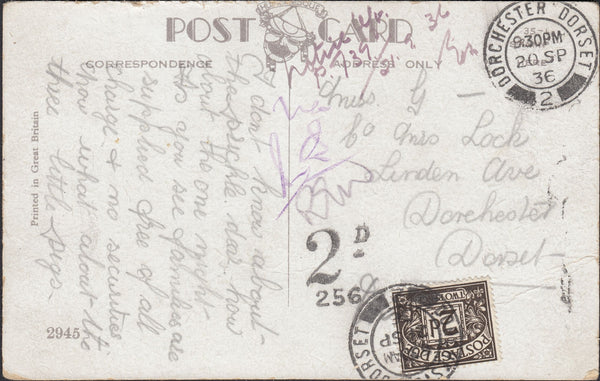 POST CARD
CORRESPONDENCE
ADDRESS ONLY
Printed in Great Britain
2945
I don't know about
that pickle dar. how
about the one night
As you see families are
supplied free of all
charge & no securities
Now what about the
three little pigs.
Miss G —
c/o Mrs Lock
Linden Ave
Dorchester
Dorset
2D
256
DORCHESTER DORSET
9.30PM
20 SP
36
2
POSTAGE DUE
2d
TWO
AM
SP
DORSET
36